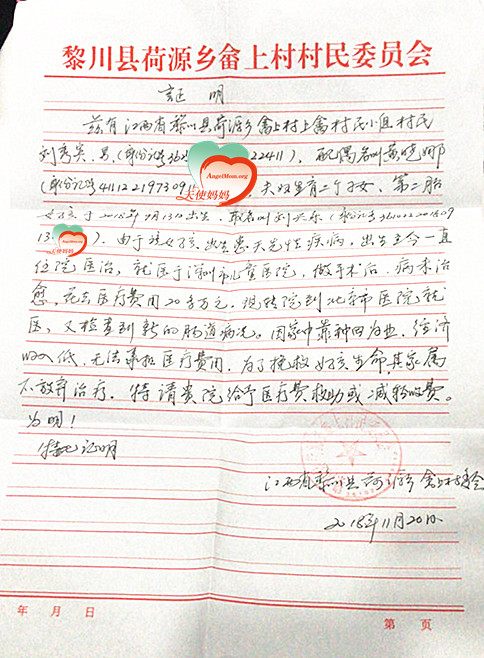 黎川县荷源乡畲上村村民委员会
证 明
兹有江西省黎川县荷源乡畲上村上畲村民小组村民
刘秀宾,男,(身份证号362 22411),配偶名叫黄晓娜
(身份证号411122197309 ,夫妇生育二个子女,第二胎
AngelMom.org
天使妈妈
女孩于2018年9月13日出生,取名叫刘 (身份证号361022201809
13 ),由于该女孩出生患先天性疾病,出生至今一直
AngelMom.org
天使妈妈
住院医治,就医于深圳市儿童医院,做手术后,病未治
愈,花去医疗费用20多万元,现转院到北京市医院就
医,又检查到新的肠道病况。因家中靠种田为业,经济
收入低,无法承担医疗费用,为了挽救女孩生命,其家属
不放弃治疗,特请贵院给予医疗费救助或减轻收费。
为明!
特此证明
江西省黎川县荷源乡畲上村委会
2018年11月20日
年 月 日 第 页